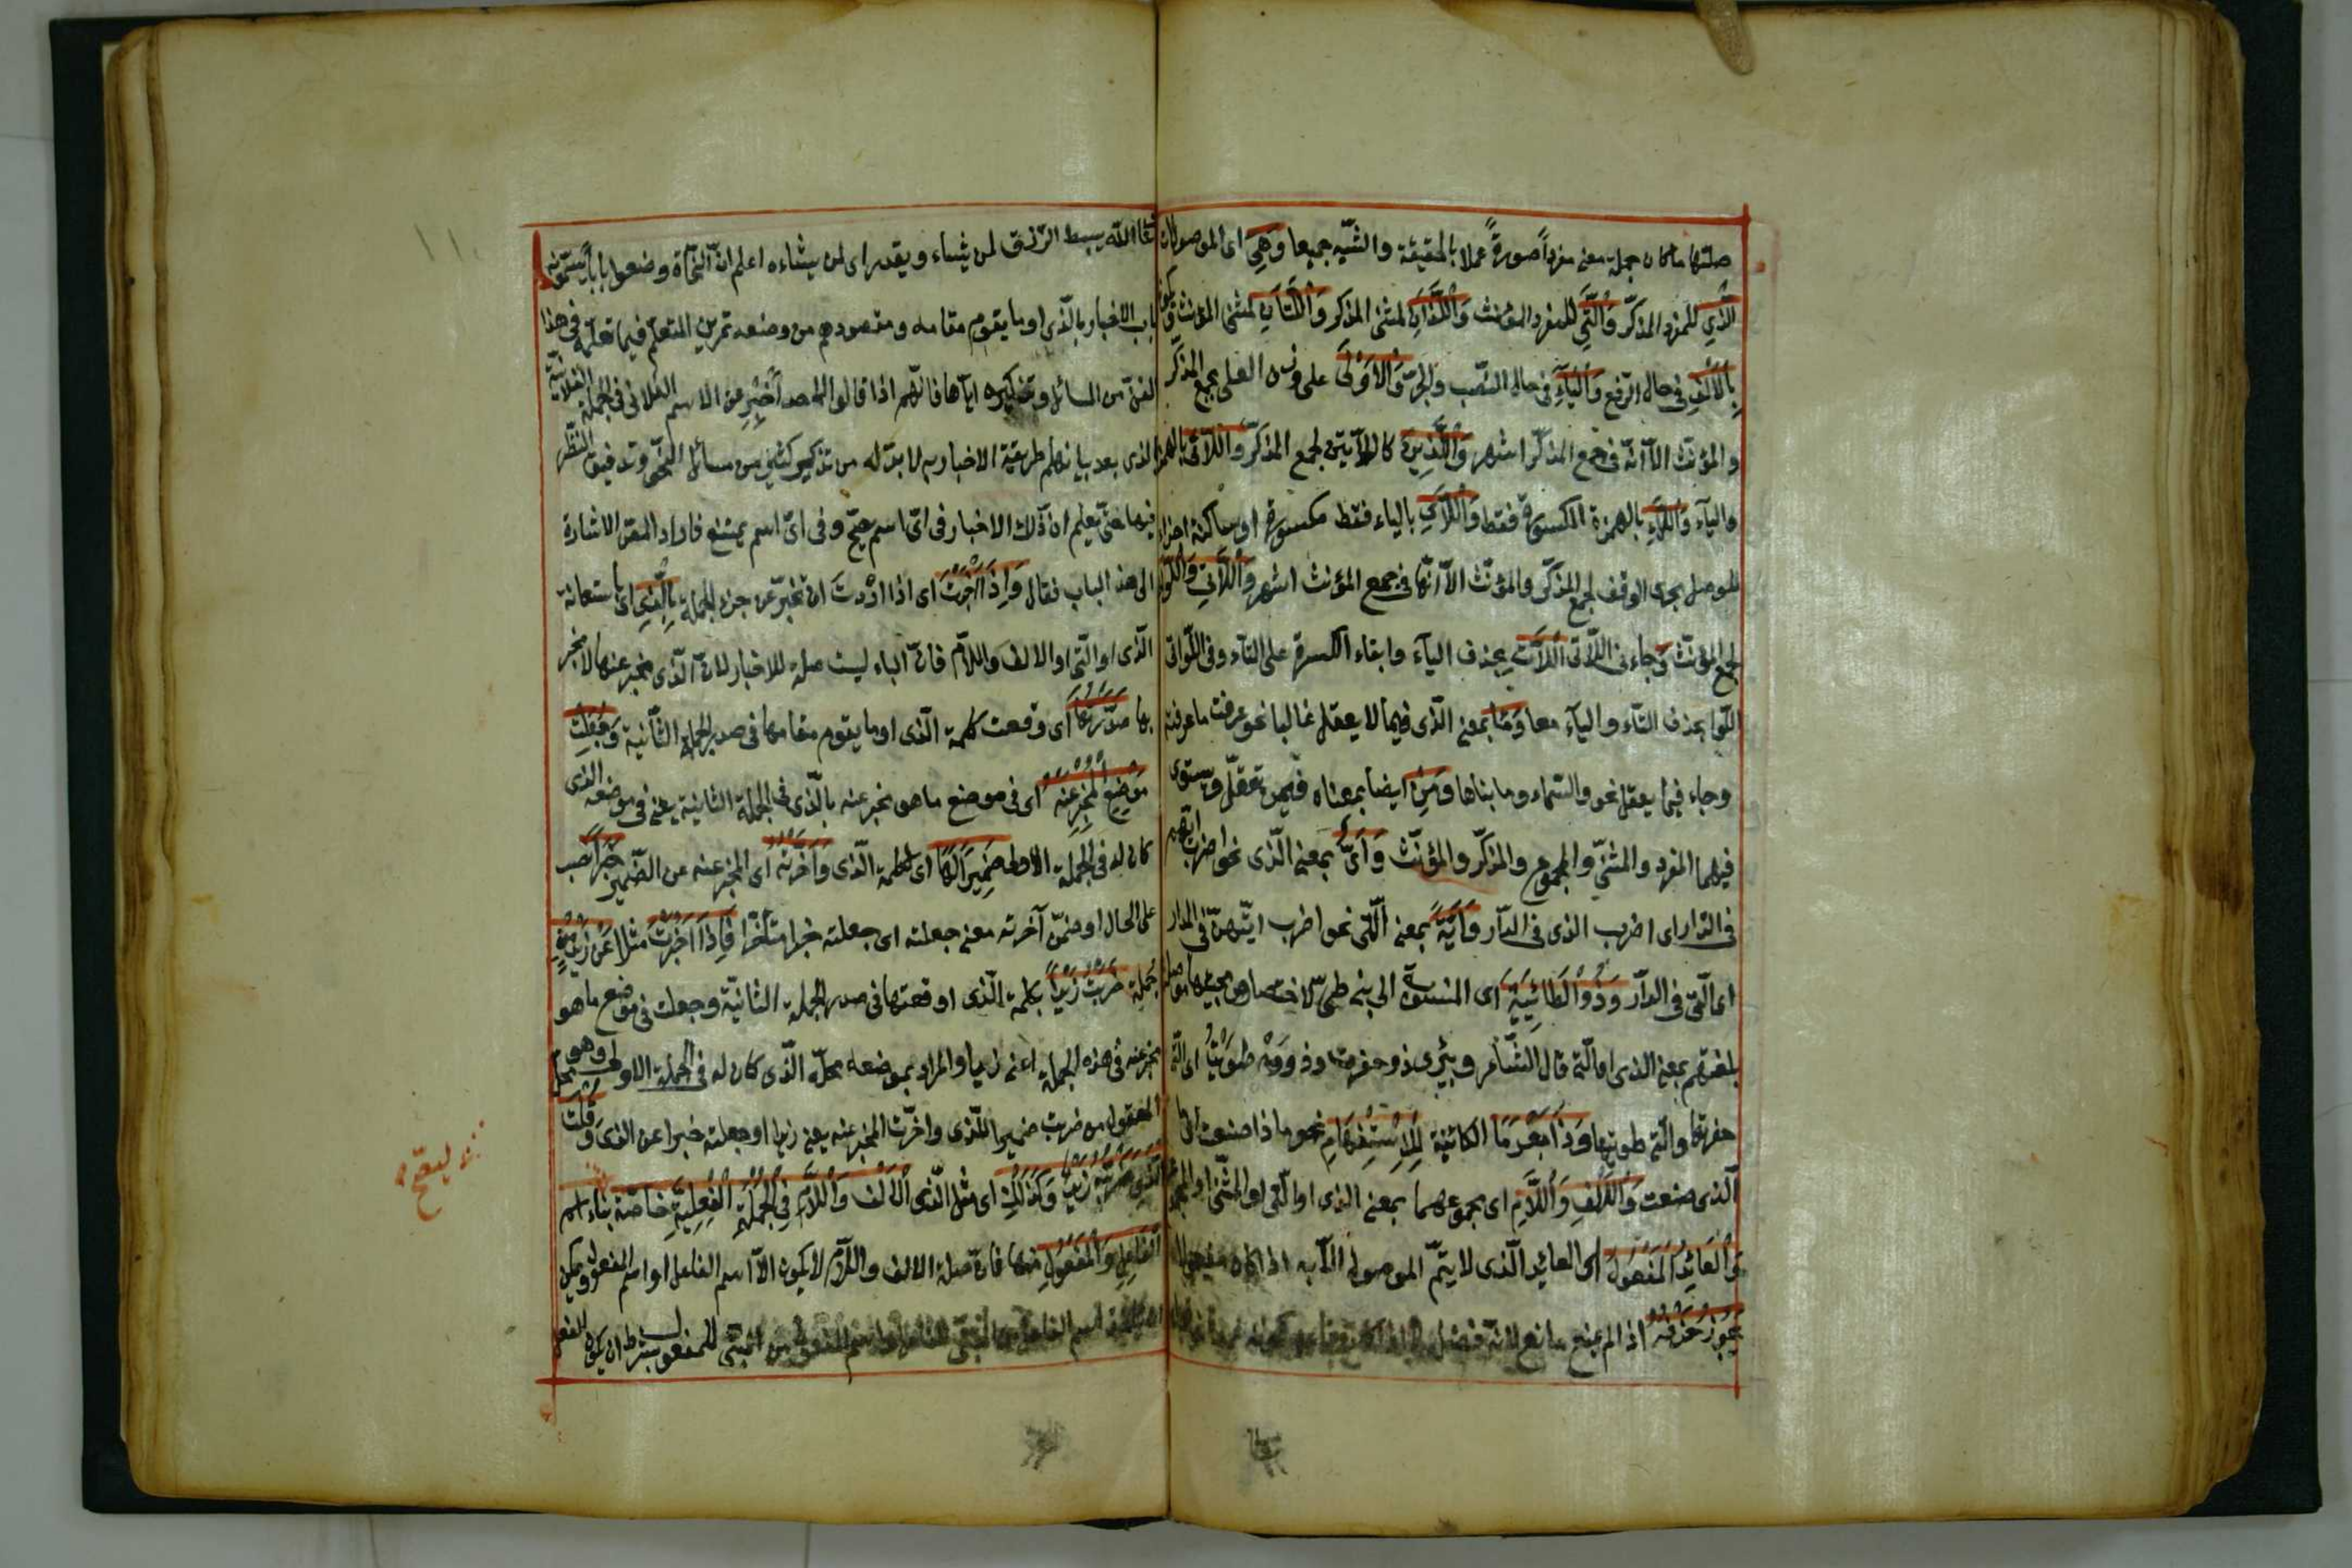 صلتها ما كان جملة معنى مفرداً صورةً عملا بالحقيقة والشبه جميعا وَهِيَ اى الموصولات
الَّذِي للمفرد المذكّر وَالَّتِي للمفرد المؤنث وَاللَّذَانِ لمثنى المذكر وَاللَّتَانِ لمثنى المؤنث ويكون
بِالْأَلِفِ فى حال الرفع وَالْيَاءِ فى حال النّصب والجرّ وَالْأُولَى على وزن العلى لجمع المذكّر
والمؤنث الّا انّه فى جمع المذكّر اشهر وَالَّذِينَ كاللآئين لجمع المذكّر وَاللَّائِي بالهمزة
والياء وَاللَّاءِ بالهمزة المكسورة فقط وَاللَّايِ بالياء فقط مكسورة او ساكنة اجراء
للوصل مجرى الوقف لجمع المذكّر والمؤنّث الّا انّها فى جمع المؤنث اشهر وَاللَّاتِي وَاللَّوَاتِي
لجمع المؤنّث وجاء فى اللّاتى اللَّاتِ بحذف الياء وابقاء الكسرة على التاء وفى اللّواتى
اللّوا بحذف التاء والياء معا وَمَا بمعنى الّذى فيما لا يعقل غالبا نحو عرفت ما عرفته
وجاء فيما يعقل نحو والسّماء وما بناها وَمَنْ ايضا بمعناه فيمن يعقل ويستوى
فيهما المفرد والمثنّى والمجموع والمذكّر والمؤنّث وَأَيٌّ بمعنى الّذى نحو اضرب ايّهم
فى الدّار اى اضرب الذى فى الدّار وَأَيَّةٌ بمعنى الّتى نحو اضرب ايّتهنّ فى الدار
اى الّتى فى الدّار وَذُو الطَّائِيَّةُ اى المنسوبة الى بنى طىّ لاختصاص مجيئها موصولة
بلغتهم بمعنى الذى او الّتى قال الشّاعر وبئرى ذو حفرت وذو طويت اى الّتى
حفرتها والّتى طويتها وَذَا بَعْدَ مَا الكائنة لِلْاِسْتِفْهَامِ نحو ماذا صنعت اى ما
الّذى صنعت وَالْأَلِفُ وَاللَّامُ اى مجموعهما بمعنى الذى او الّتى او المثنّى او المجموع
وَالْعَائِدُ الْمَفْعُولُ اى العائد الّذى لا يتمّ الموصول الّا به اذا كان مفعولا
يَجُوزُ حَذْفُهُ اذا لم يمنع مانع لانّه فضلة
الله يبسط الرّزق لمن يشاء ويقدر اى لمن يشاءه اعلم انّ النّحاة وضعوا بابا يسمّونه
باب الاخبار بالّذى او ما يقوم مقامه ومقصودهم من وضعه تمرين المتعلّم فيما تعلّمه فى هذا
الفنّ من المسائل وتذكيره ايّاها فانّهم اذا قالوا لاحد أَخْبِرْ عن الاسم الفلانى فى الجملة الفلانيّة
بالذى بعد بيانهم طريقة الاخبار به لا بدّ له من تذكير كثير من مسائل النحو وتدقيق النّظر
فيها حتى يعلم ان ذلك الاخبار فى اىّ اسم يصحّ وفى اىّ اسم يمتنع فاراد المصنّف الاشارة
الى هذا الباب فقال وَإِذَا أَخْبَرْتَ اى اذا اردت ان تخبر عن جزء الجملة بِالَّذِي اى باستعانة
الّذى او الّتى او الالف واللّام فانّ الباء ليست صلة للاخبار لانّ الّذى مخبر عنها لا مخبر
بها صَدَّرْتَهَا اى وقعت كلمة الّذى او ما يقوم مقامها فى صدر الجملة الثّانية وَجَعَلْتَ
مَوْضِعَ الْمُخْبَرِ عَنْهُ اى فى موضع ما هو مخبر عنه بالّذى فى الجملة الثانية يعنى فى موضعه الذى
كان له فى الجملة الاولى ضَمِيراً لَهَا اى لكلمة الّذى وَأَخَّرْتَهُ اى المخبر عنه عن الضّمير خَبَراً نصب
على الحال او ضمّن اخّرته معنى جعلته اى جعلته خبرا متأخّرا فَإِذَا أَخْبَرْتَ مثلا عَنْ زَيْدٍ مِنْ
جملة ضَرَبْتُ زَيْداً بكلمة الّذى اوقعتها فى صدر الجملة الثانيّة وجعلت فى موضع ما هو
مخبر عنه فى هذه الجملة اعنى زيدا والمراد بموضعه محلّه الّذى كان له فى الجملة الاولى وهو محلّ
المفعول من ضربت ضميرا للّذى واخّرت المخبر عنه يعنى زيدا وجعلته خبرا عن الذى وَقُلْتَ
الَّذِي ضَرَبْتُهُ زَيْدٌ وَكَذَلِكَ اى مثل الّذى الْأَلِفُ وَاللَّامُ فِي الْجُمْلَةِ الْفِعْلِيَّةِ خاصّة بناء اسم
الْفَاعِلِ وَالْمَفْعُولِ منها فانّ صلة الالف واللّام لا يكون الّا اسم الفاعل او اسم المفعول ويمكن
اسم الفاعل من المبنى للفاعل واسم المفعول من المبنى للمفعول بشرط ان يكون الفعل